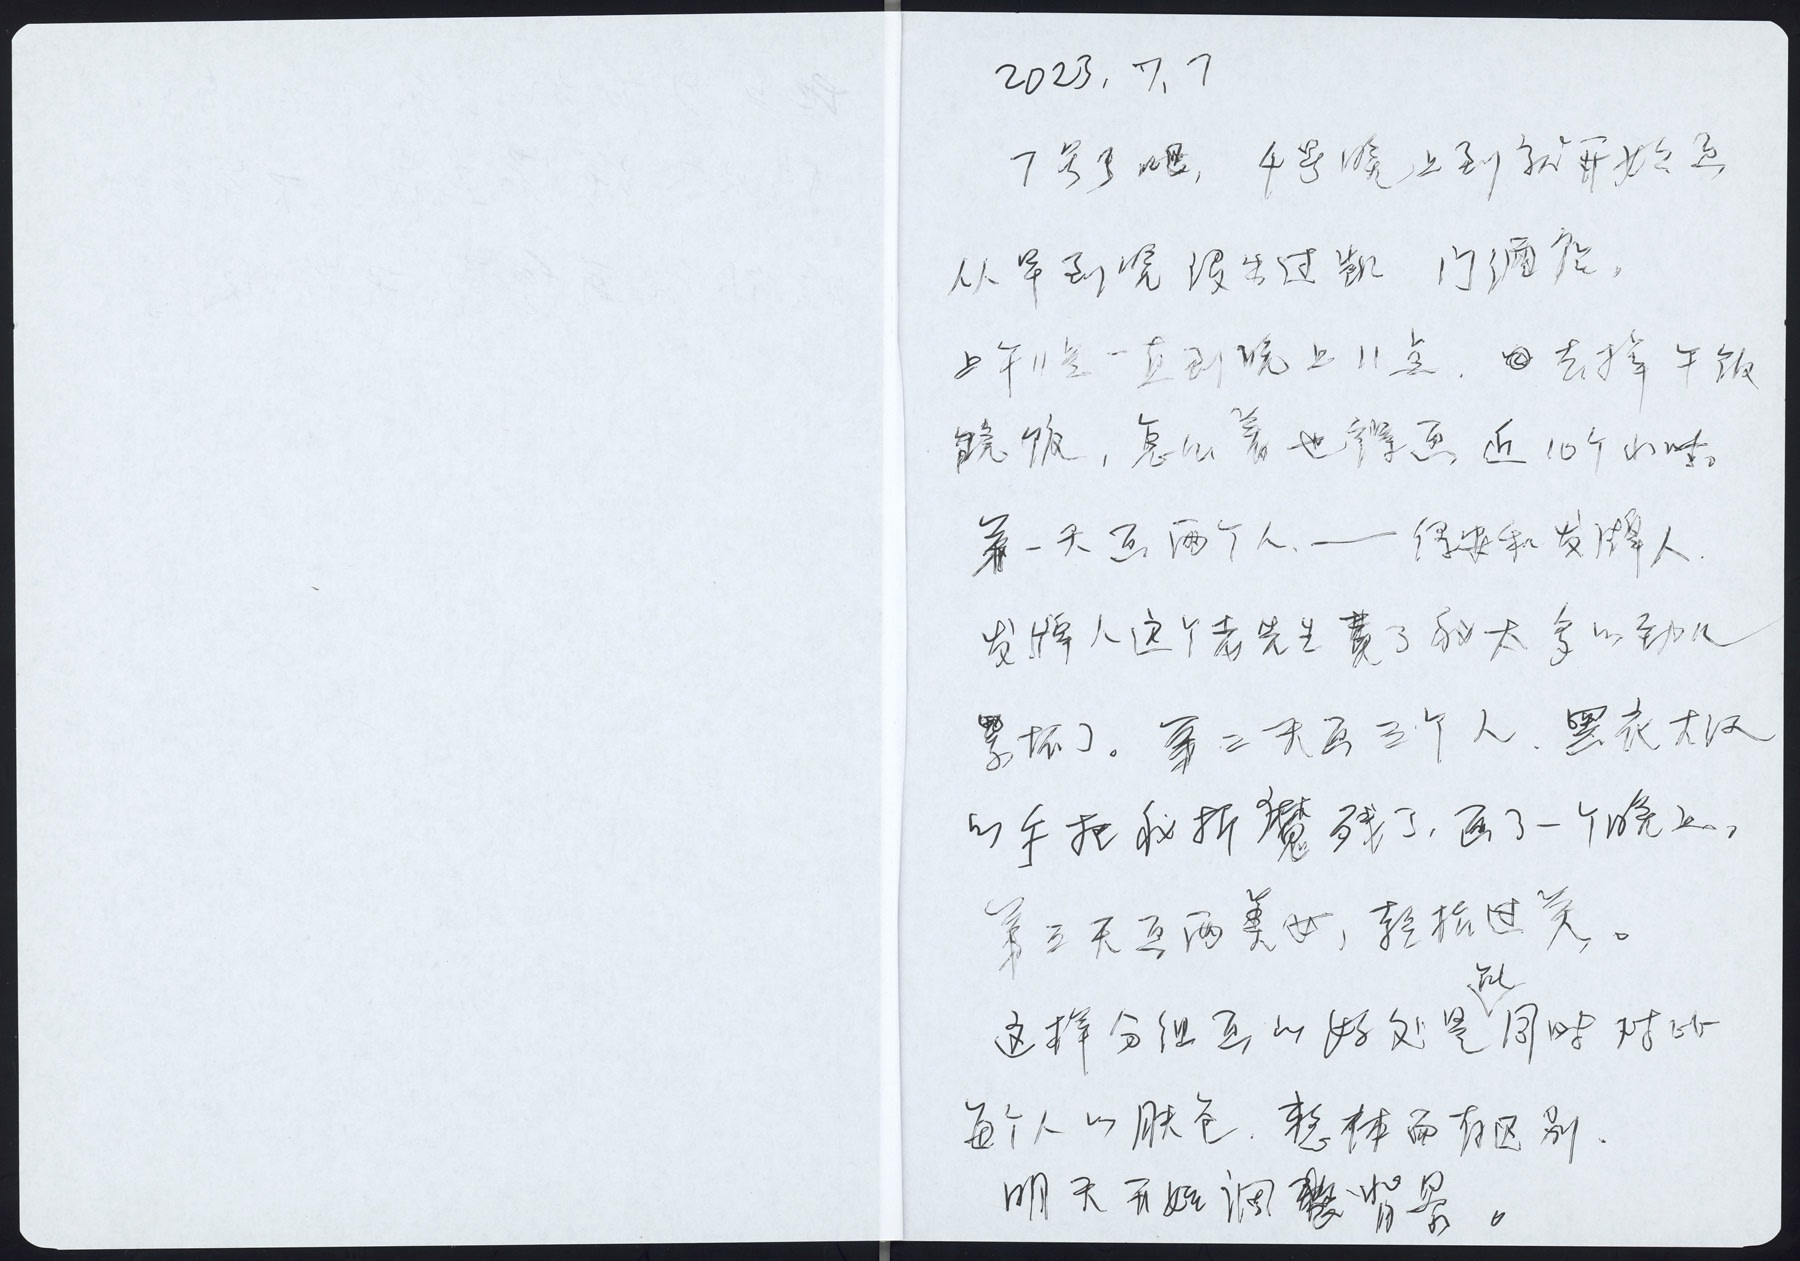 2023.7.7
7号了吧，4号晚上到就开始画
从早到晚没出过凯 门酒店。
上午11点一直到晚上11点．去掉午饭
晚饭，怎么着也得画近10个小时。
第一天画两个人．——保安和发牌人．
发牌人这个老先生费了我太多的劲儿
累坏了。第二天画三个人．黑衣大汉
的手把我折磨残了，画了一个晚上，
第三天画两美女，轻松过关。
这样分组画的好处是能同时对比
每个人的肤色．整体而有区别．
明天开始调整背景。